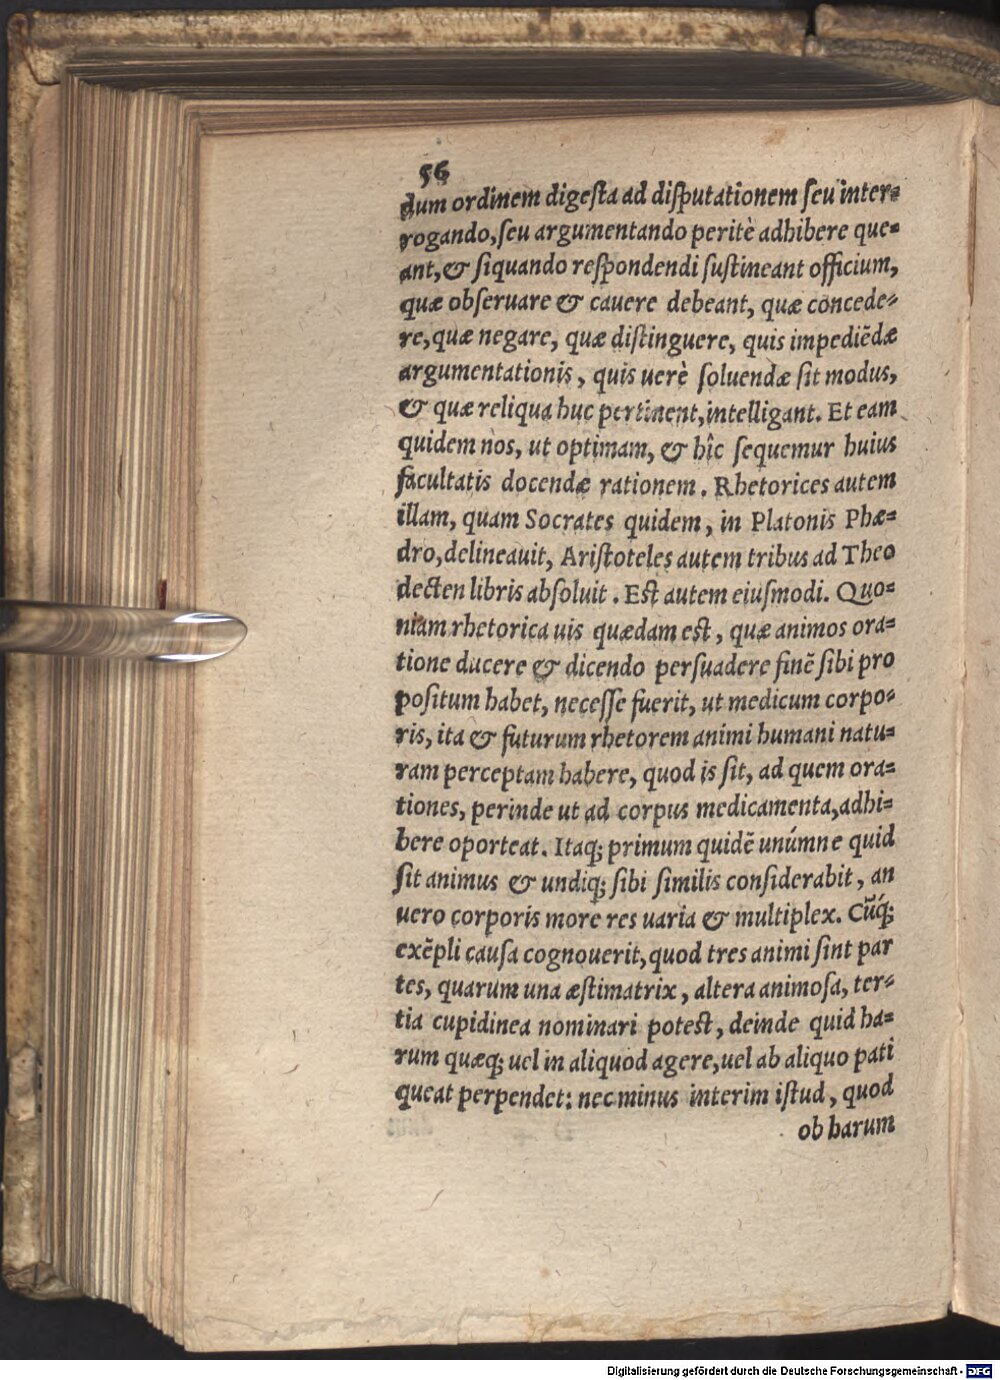 56
dum ordinem digesta ad disputationem seu inter=
rogando, seu argumentando peritè adhibere que=
ant, & siquando respondendi sustineant officium,
quæ obseruare & cauere debeant, quæ concede=
re, quæ negare, quæ distinguere, quis impediẽdæ
argumentationis, quis uerè soluendæ sit modus,
& quæ reliqua huc pertinent, intelligant. Et eam
quidem nos, ut optimam, & hîc sequemur huius
facultatis docendæ rationem. Rhetorices autem
illam, quam Socrates quidem, in Platonis Phæ=
dro, delineauit, Aristoteles autem tribus ad Theo
decten libris absoluit. Est autem eiusmodi. Quo=
niam rhetorica uis quædam est, quæ animos ora=
tione ducere & dicendo persuadere finẽ sibi pro
positum habet, necesse fuerit, ut medicum corpo=
ris, ita & futurum rhetorem animi humani natu=
ram perceptam habere, quod is sit, ad quem ora=
tiones, perinde ut ad corpus medicamenta, adhi=
bere oporteat. Itaq; primum quidẽ unúmne quid
sit animus & undiq; sibi similis considerabit, an
uero corporis more res uaria & multiplex. Cũq́;
exẽpli causa cognouerit, quod tres animi sint par
tes, quarum una æstimatrix, altera animosa, ter=
tia cupidinea nominari potest, deinde quid ha=
rum quæq; uel in aliquod agere, uel ab aliquo pati
queat perpendet: nec minus interim istud, quod
ob harum
Digitalisierung gefördert durch die Deutsche Forschungsgemeinschaft - DFG